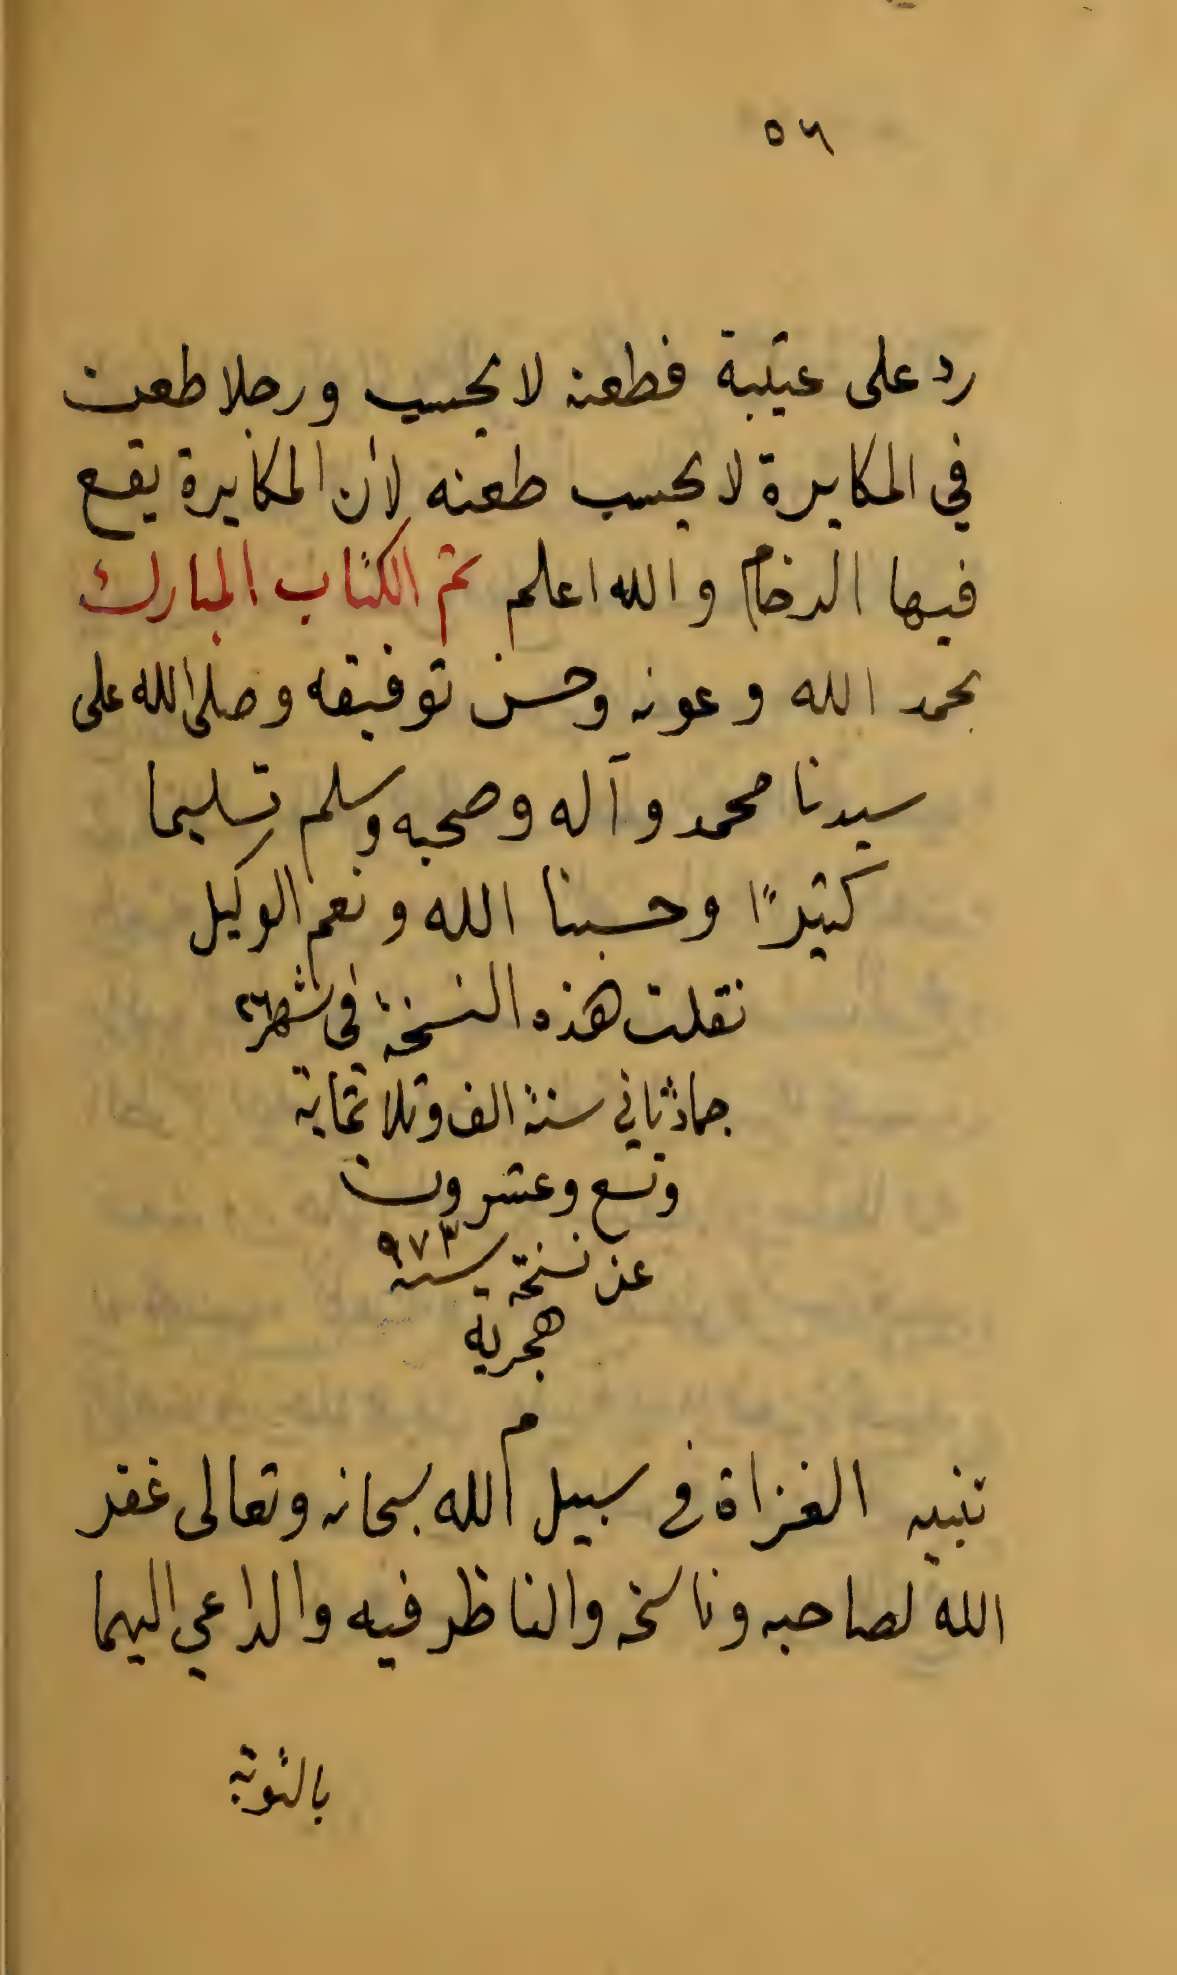 ٥٦
رد على عتيبة فطعنه لا يحسب ورجلا طعن
في المكابرة لا يحسب طعنه لأن المكابرة يقع
فيها الزحام والله اعلم تم الكتاب المبارك
بحمد الله وعونه وحسن توفيقه وصلى الله على
سيدنا محمد وآله وصحبه وسلم تسليما
كثيرًا وحسبنا الله ونعم الوكيل
نقلت هذه النسخة في شهر ٢٦
جماد ثاني سنة الف وتلاتماية
وتسع وعشرون
عن نسخة سنة ٩٧٣
هجرية
م
تنبيه الغزاة في سبيل الله سبحانه وتعالى غفر
الله لصاحبه وناسخه والناظر فيه والداعي اليهما
بالتوبة